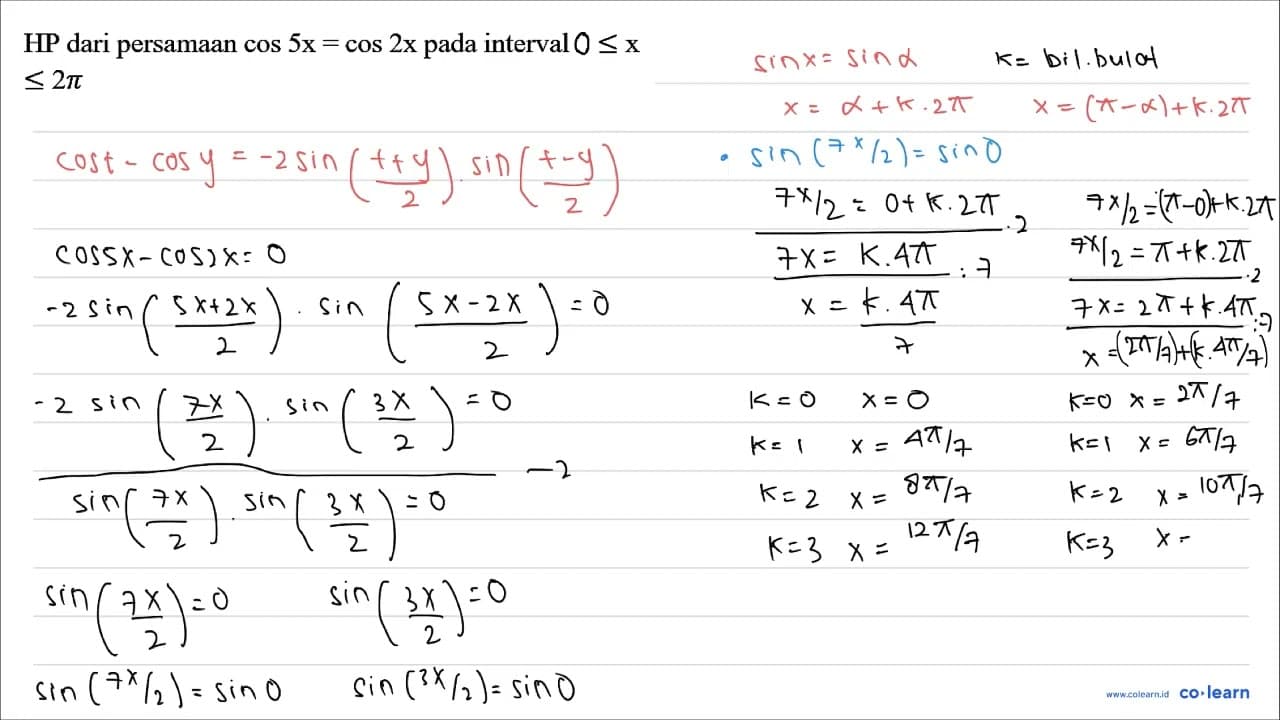 HP dari persamaan cos 5x = cos 2x pada interval 0 ≤ x
≤ 2π
cos t - cos y = -2 sin ((t+y)/2) . sin ((t-y)/2)
cos5x - cos2x = 0
-2 sin ((5x+2x)/2) . sin ((5x-2x)/2) = 0
-2 sin (7x/2) . sin (3x/2) = 0
-2
sin (7x/2) . sin (3x/2) = 0
sin (7x/2) = 0 sin (3x/2) = 0
sin (7x/2) = sin 0 sin (3x/2) = sin 0
sin x = sin α k = bil. bulat
x = α + k . 2π x = (π-α) + k . 2π
• sin (7x/2) = sin 0
7x/2 = 0 + k . 2π .2
7x = k . 4π :7
x = k . 4π/7
k=0 x = 0
k=1 x = 4π/7
k=2 x = 8π/7
k=3 x = 12π/7
7x/2 = (π-0) + k . 2π
7x/2 = π + k . 2π .2
7x = 2π + k . 4π :7
x = (2π/7) + (k . 4π/7)
k=0 x = 2π/7
k=1 x = 6π/7
k=2 x = 10π/7
k=3 x =
www.colearn.id co·learn